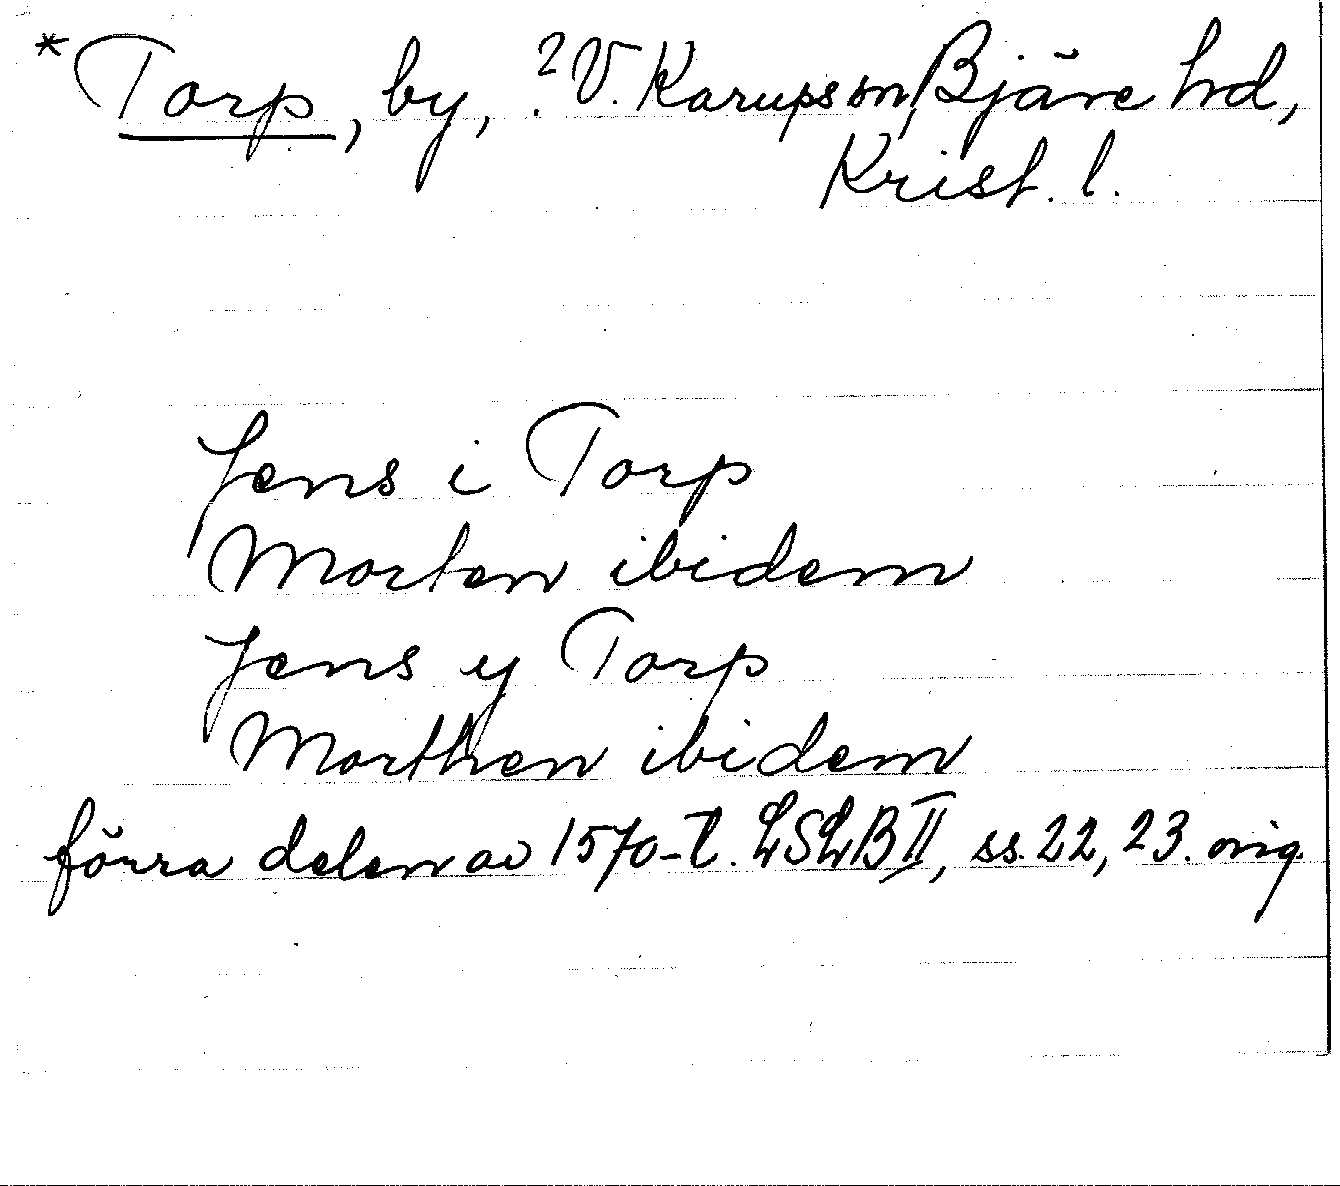 *Torp, by, ?V. Karups sn, Bjäre hd,
Krist. l.
Jens i Torp
Morten ibidem
Jens y Torp
Morthen ibidem
förra delen av 1570-t. LSLB II, ss. 22, 23. orig.